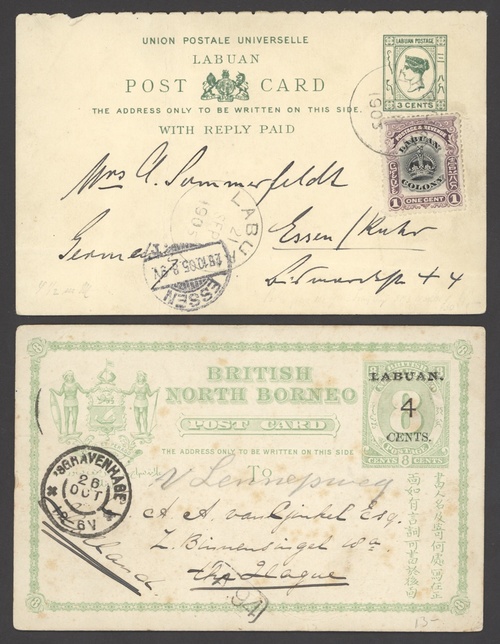 UNION POSTALE UNIVERSELLE
LABUAN
POST CARD
THE ADDRESS ONLY TO BE WRITTEN ON THIS SIDE.
WITH REPLY PAID
LABUAN POSTAGE
3 CENTS
1903
POSTAGE & REVENUE
LABUAN
COLONY
1 ONE CENT 1
Mrs A. Sommerfeldt
LABUA
21
SEP
190
Germany
Essen / Ruhr
ESSEN
28.10.05.8-9V
Bismarckstr 44
BRITISH
NORTH BORNEO
POST CARD
THE ADDRESS ONLY TO BE WRITTEN ON THIS SIDE.
TO
LABUAN.
4
CENTS.
8 CENTS 8
'SGRAVENHAGE
26
OCT
12-6V
v Lennepweg
A. A. van Ginkel Esq.
Z. Binnensingel 18a
The Hague
Holland
94
13-